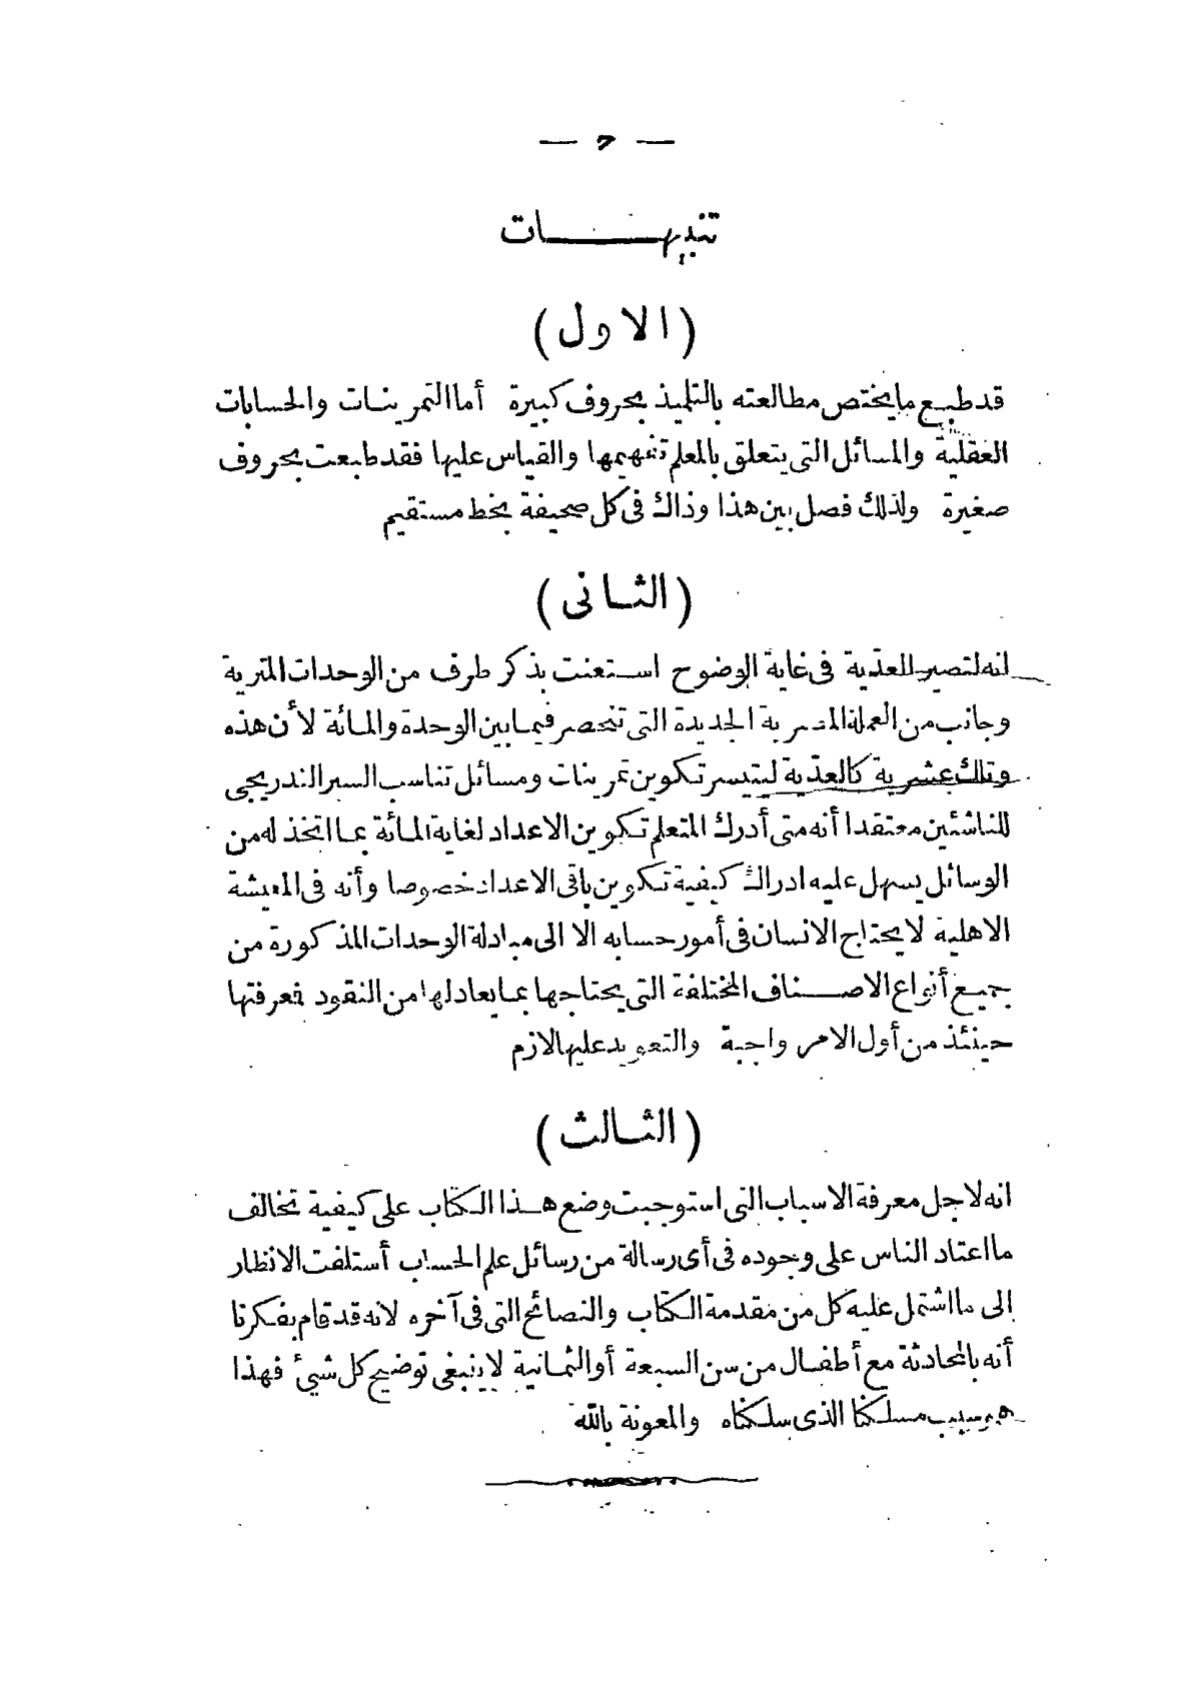 — ٦ —
تنبيهات
(الاول)
قد طبع ما يختص مطالعته بالتلميذ بحروف كبيرة أما التمرينات والحسابات
العقلية والمسائل التى يتعلق بالمعلم تفهيمها والقياس عليها فقد طبعت بحروف
صغيرة ولذلك فصل بين هذا وذاك فى كل صحيفة بخط مستقيم
(الثانى)
انه لتصير للعدية فى غاية الوضوح استعنت بذكر طرف من الوحدات المترية
وجانب من العملة المصرية الجديدة التى تنحصر فيما بين الوحدة والمائة لأن هذه
وتلك عشرية كالعدية ليتيسر تكوين تمرينات ومسائل تناسب السير التدريجى
للناشئين معتقدا أنه متى أدرك المتعلم تكوين الاعداد لغاية المائة بما اتخذ له من
الوسائل يسهل عليه ادراك كيفية تكوين باقى الاعداد خصوصا وأنه فى المعيشة
الاهلية لا يحتاج الانسان فى أمور حسابه الا الى مبادلة الوحدات المذكورة من
جميع أنواع الاصناف المختلفة التى يحتاجها بما يعادلها من النقود فمعرفتها
حينئذ من أول الامر واجبة والتعويد عليها لازم
(الثالث)
انه لاجل معرفة الاسباب التى استوجبت وضع هذا الكتاب على كيفية تخالف
ما اعتاد الناس على وجوده فى أى رسالة من رسائل علم الحساب أستلفت الانظار
إلى ما اشتمل عليه كل من مقدمة الكتاب والنصائح التى فى آخره لانه قد قام بفكرنا
أنه بالمحادثة مع أطفال من سن السبعة أو الثمانية لا ينبغى توضيح كل شئ فهذا
هو سبب مسلكنا الذى سلكناه والمعونة بالله